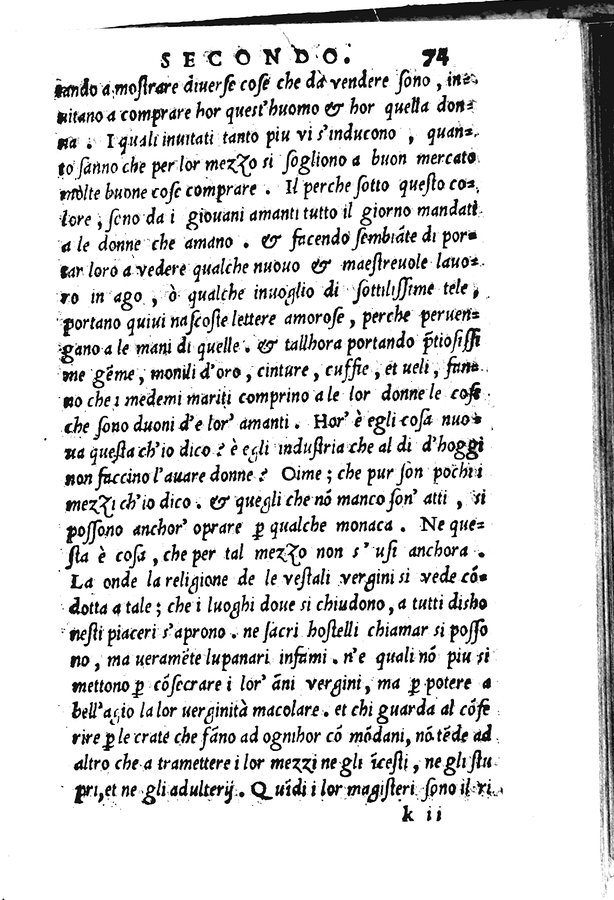 SECONDO. 74
tando a mostrare diuerse cose che da vendere sono, in=
uitano a comprare hor quest'huomo & hor quella don=
na. I quali inuitati tanto piu vi s'inducono, quan=
to sanno che per lor mezzo si sogliono a buon mercato
molte buone cose comprare. Il perche sotto questo co=
lore, sono da i giouani amanti tutto il giorno mandati
a le donne che amano. & facendo sembiãte di por=
tar loro a vedere qualche nuouo & maestreuole lauo=
ro in ago, ò qualche inuoglio di sottilissime tele,
portano quiui nascoste lettere amorose, perche peruen=
gano a le mani di quelle. & tallhora portando p̃tiosissi
me gẽme, monili d'oro, cinture, cuffie, et ueli, fan=
no che i medemi mariti comprino a le lor donne le cose
che sono duoni d'e lor' amanti. Hor' è egli cosa nuo=
ua questa ch'io dico? è egli industria che al di d'hoggi
non faccino l'auare donne? Oime; che pur son pochi i
mezzi ch'io dico. & quegli che nõ manco son' atti, si
possono anchor' oprare ꝑ qualche monaca. Ne que=
sta è cosa, che per tal mezzo non s'usi anchora.
La onde la religione de le vestali vergini si vede cõ=
dotta a tale; che i luoghi doue si chiudono, a tutti disho
nesti piaceri s'aprono. ne sacri hostelli chiamar si posso
no, ma ueramẽte lupanari infami. n'e quali nõ piu si
mettono ꝑ cõsecrare i lor' ãni vergini, ma ꝑ potere a
bell'agio la lor verginità macolare. et chi guarda al cõfe
rire ꝑ le crate che fãno ad ognihor cõ mõdani, nõ tẽde ad
altro che a tramettere i lor mezzi ne gli ĩcesti, ne gli stu
pri, et ne gli adulterij. Quĩdi i lor magisteri sono il ri
k ii